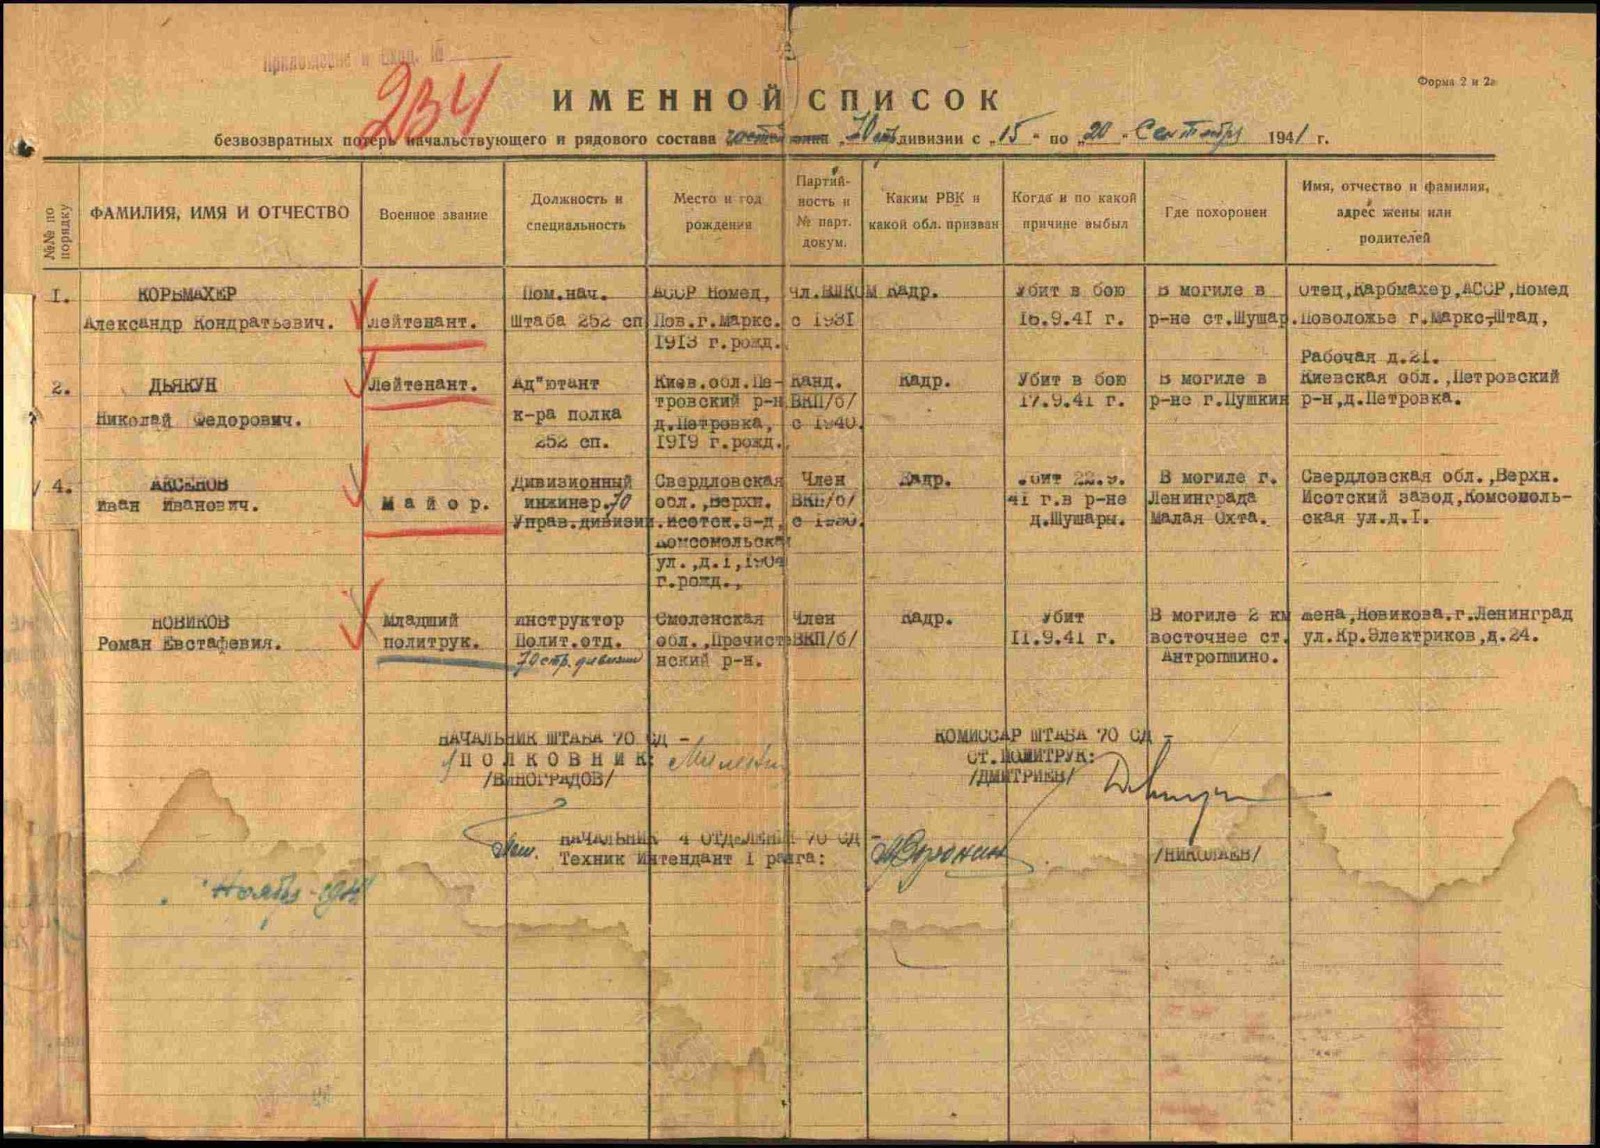 Приложение к вход. №
234
Форма 2 и 2а
ИМЕННОЙ СПИСОК
безвозвратных потерь начальствующего и рядового состава 70 стр. дивизии с „15“ по „20“ Сентября 1941 г.
№№ по порядку
ФАМИЛИЯ, ИМЯ И ОТЧЕСТВО
Военное звание
Должность и специальность
Место и год рождения
Партийность и № парт. докум.
Каким РВК и какой обл. призван
Когда и по какой причине выбыл
Где похоронен
Имя, отчество и фамилия, адрес жены или родителей
1.
КОРЬМАХЕР
Александр Кондратьевич.
Лейтенант.
Пом.нач.
Штаба 252 сп
АССР Номед,
Пов.г.Маркс.
1913 г.рожд.
чл.ВЛКСМ
с 1931
Кадр.
Убит в бою
16.9.41 г.
В могиле в
р-не ст.Шушар.
Отец,Карбмахер,АССР,Номед
Поволожье г.Маркс-Штад,
Рабочая д.21.
2.
ДЬЯКУН
Николай Федорович.
Лейтенант.
Ад"ютант
к-ра полка
252 сп.
Киев.обл.Пе-
тровский р-н
д.Петровка,
1919 г.рожд.
Канд.
ВКП/б/
с 1940.
Кадр.
Убит в бою
17.9.41 г.
В могиле в
р-не г.Пушкин
Киевская обл.,Петровский
р-н,д.Петровка.
4.
АКСЕНОВ
Иван Иванович.
Майор.
Дивизионный
инжинер.70
Управ.дивизии.
Свердловская
обл.,Верхн.
Исотск.з-д,
Комсомольская
ул.,д.I,1904
г.рожд.,
Член
ВКП/б/
с 1930.
Кадр.
Убит 22.9.
41 г.в р-не
д.Шушары.
В могиле г.
Ленинграда
Малая Охта.
Свердловская обл.,Верхн.
Исотский завод,Комсомоль-
ская ул.д.I.
НОВИКОВ
Роман Евстафевия.
Младший
политрук.
инструктор
Полит.отд.
70 стр. дивизии
Смоленская
обл.,Пречист
нский р-н.
Член
ВКП/б/
Кадр.
Убит
11.9.41 г.
В могиле 2 км
восточнее ст.
Антропшино.
жена,Новикова.г.Ленинград
ул.Кр.Электриков,д.24.
НАЧАЛЬНИК ШТАБА 70 СД -
/ПОЛКОВНИК:
/ВИНОГРАДОВ/
КОМИССАР ШТАБА 70 СД -
СТ.ПОЛИТРУК:
/ДМИТРИЕВ/
НАЧАЛЬНИК 4 ОТДЕЛЕНИЯ 70 СД -
Техник Интендант I ранга:
/НИКОЛАЕВ/
Ноябрь-1941